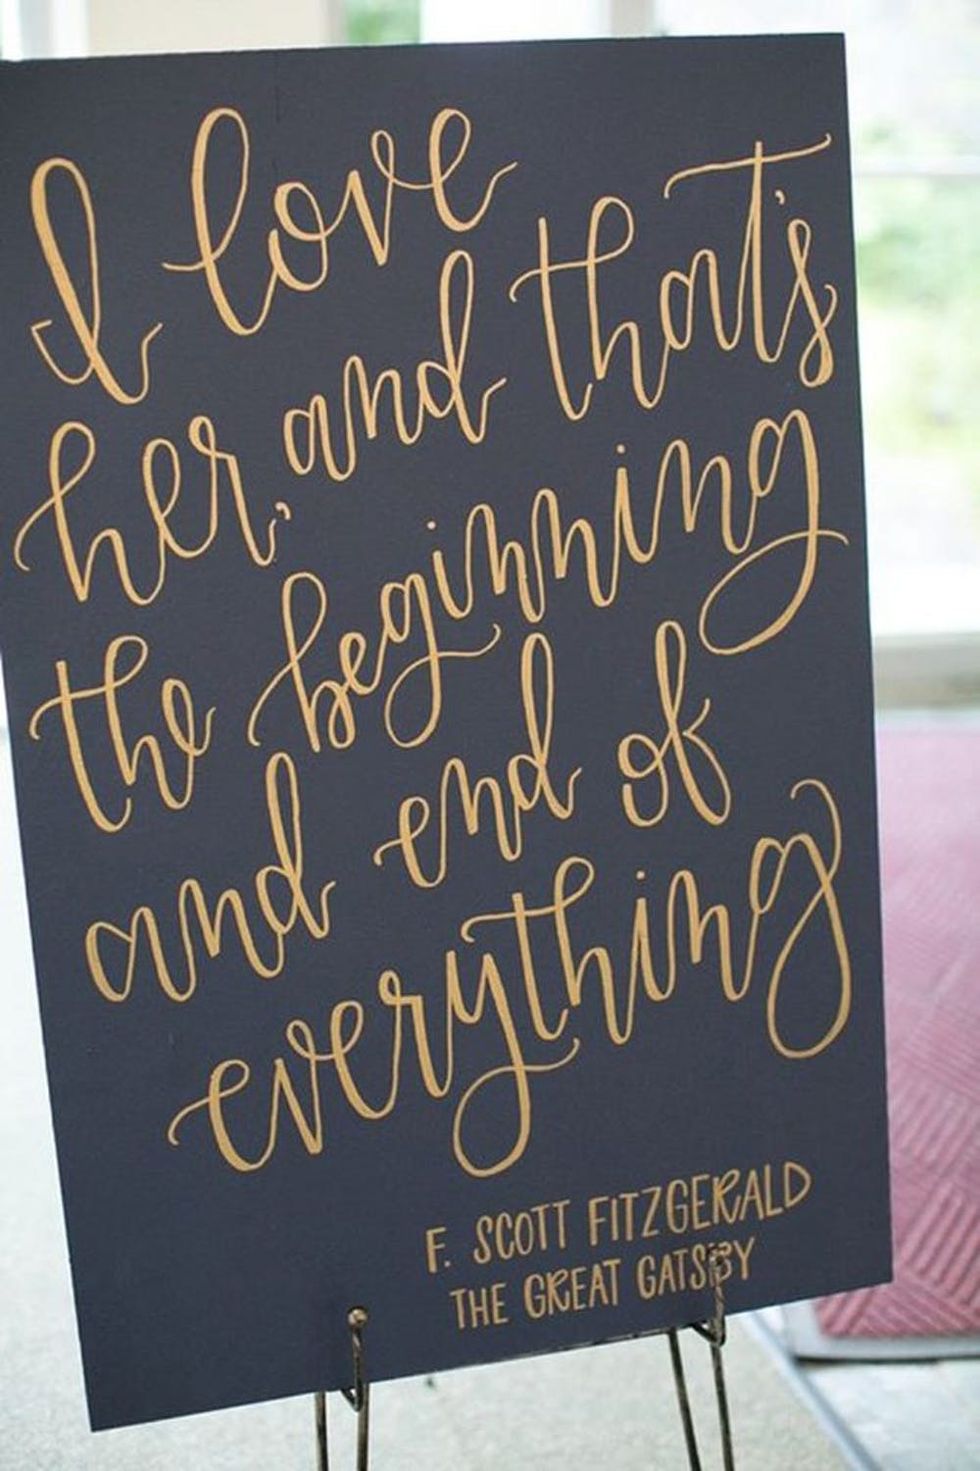 I love
her, and that's
the beginning
and end of
everything
F. SCOTT FITZGERALD
THE GREAT GATSBY